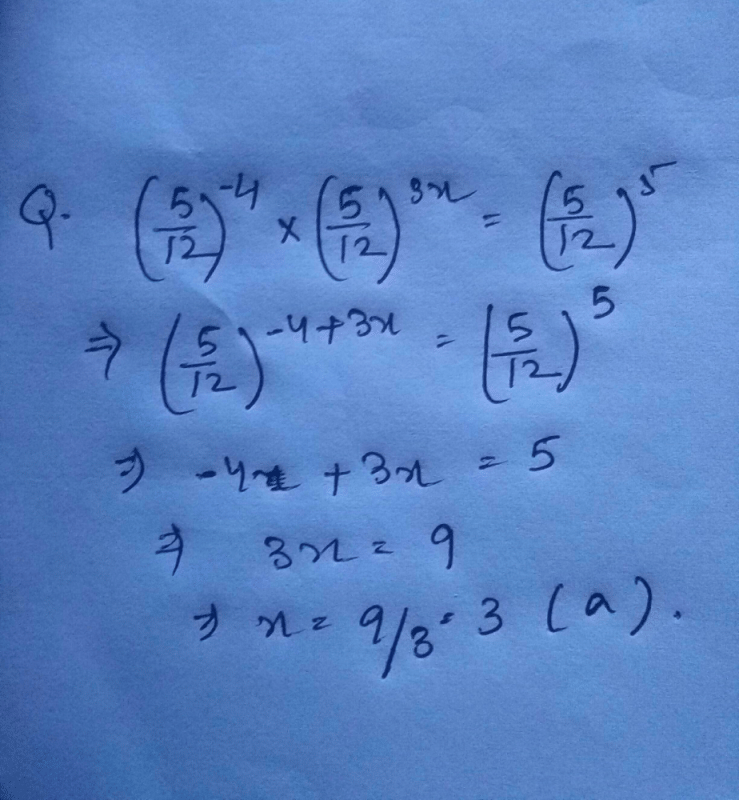 Q. (5/12)^-4 × (5/12)^3x = (5/12)^5
⇒ (5/12)^-4+3x = (5/12)^5
⇒ -4 + 3x = 5
⇒ 3x = 9
⇒ x = 9/3 = 3 (a).